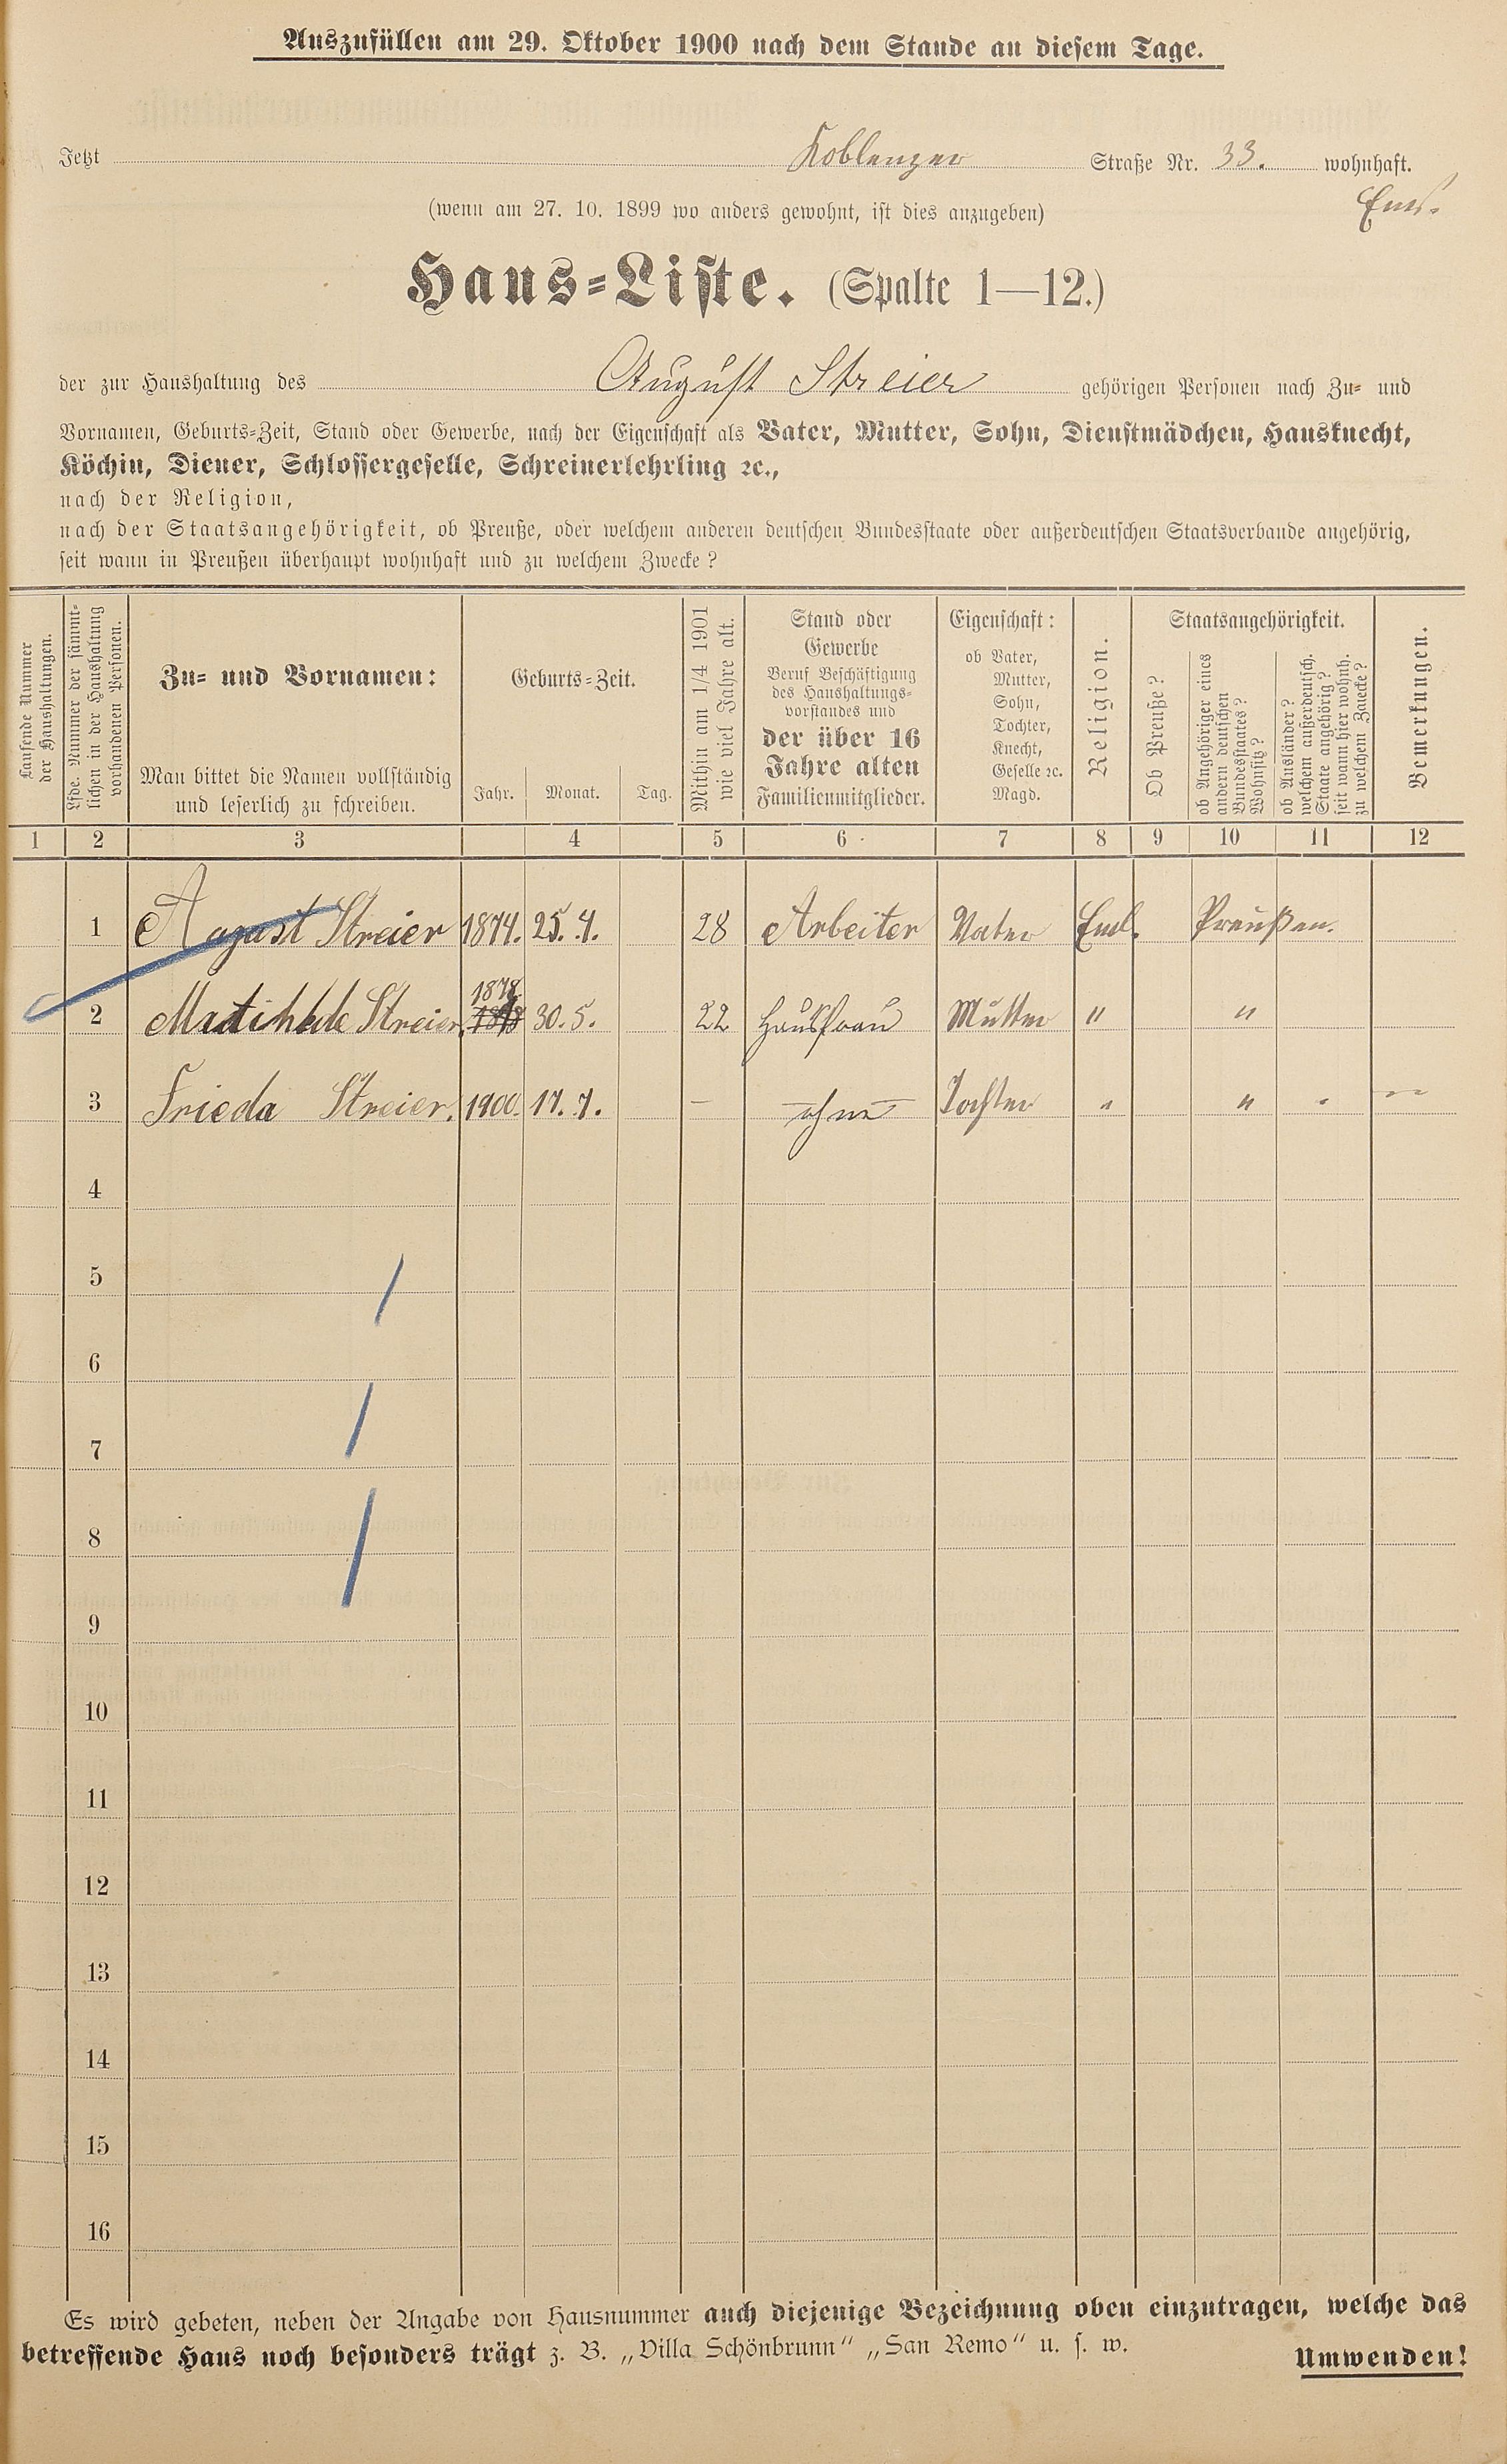 Auszufüllen am 29. Oktober 1900 nach dem Stande an diesem Tage.
Jetzt Koblenzer Straße Nr. 33. wohnhaft.
(wenn am 27. 10. 1899 wo anders gewohnt, ist dies anzugeben) Ems.
Haus-Liste. (Spalte 1—12.)
der zur Haushaltung des August Streier gehörigen Personen nach Zu- und
Vornamen, Geburts-Zeit, Stand oder Gewerbe, nach der Eigenschaft als Vater, Mutter, Sohn, Dienstmädchen, Hausknecht,
Köchin, Diener, Schlossergeselle, Schreinerlehrling ꝛc.,
nach der Religion,
nach der Staatsangehörigkeit, ob Preuße, oder welchem anderen deutschen Bundesstaate oder außerdeutschen Staatsverbande angehörig,
seit wann in Preußen überhaupt wohnhaft und zu welchem Zwecke?
Laufende Nummer
der Haushaltungen.
Lfde. Nummer der sämmt-
lichen in der Haushaltung
vorhandenen Personen.
Zu- und Vornamen:
Man bittet die Namen vollständig
und leserlich zu schreiben.
Geburts-Zeit.
Jahr. Monat. Tag.
Mithin am 1/4 1901
wie viel Jahre alt.
Stand oder
Gewerbe
Beruf Beschäftigung
des Haushaltungs-
vorstandes und
der über 16
Jahre alten
Familienmitglieder.
Eigenschaft:
ob Vater,
Mutter,
Sohn,
Tochter,
Knecht,
Geselle ꝛc.
Magd.
Religion.
Staatsangehörigkeit.
Ob Preuße?
ob Angehöriger eines
andern deutschen
Bundesstaates?
Wohnsitz?
ob Ausländer?
welchem außerdeutsch.
Staate angehörig?
seit wann hier wohnh.
zu welchem Zwecke?
Bemerkungen.
1 2 3 4 5 6 7 8 9 10 11 12
1 August Streier 1874. 25. 4. 28 Arbeiter Vater Preußen.
2 Mathilde Streier. 1878 30. 5. 22 Hausfrau Mutter " "
3 Frieda Streier. 1900. 17. 7. — ohne Tochter " " "
4
5
6
7
8
9
10
11
12
13
14
15
16
Es wird gebeten, neben der Angabe von Hausnummer auch diejenige Bezeichnung oben einzutragen, welche das
betreffende Haus noch besonders trägt z. B. „Villa Schönbrunn“ „San Remo“ u. s. w.
Umwenden!